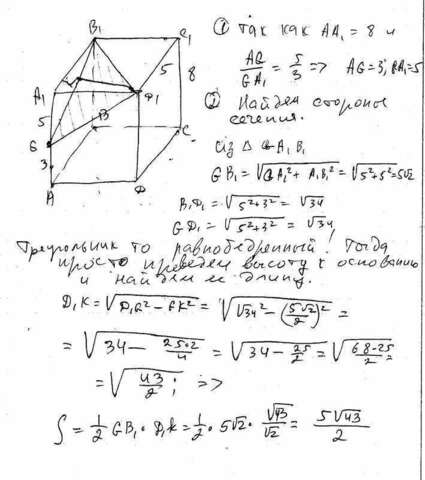 B₁
C₁
A₁
D₁
5
8
5
B
C
G
3
A
D
① Так как AA₁ = 8 и
AG/GA₁ = 5/3 => AG=3; GA₁=5
② Найдем стороны
сечения.
Из △ GA₁B₁
GB₁ = √(GA₁² + A₁B₁²) = √(5²+5²) = 5√2
B₁D₁ = √(5²+3²) = √34
GD₁ = √(5²+3²) = √34
Треугольник то равнобедренный! Тогда
просто проведем высоту к основанию
и найдем ее длину.
D₁K = √(D₁G² − GK²) = √(√34² − (5√2/2)²) =
= √(34 − 25·2/4) = √(34 − 25/2) = √((68−25)/2) =
= √(43/2); =>
S = 1/2 GB₁ · D₁K = 1/2 · 5√2 · √43/√2 = 5√43/2